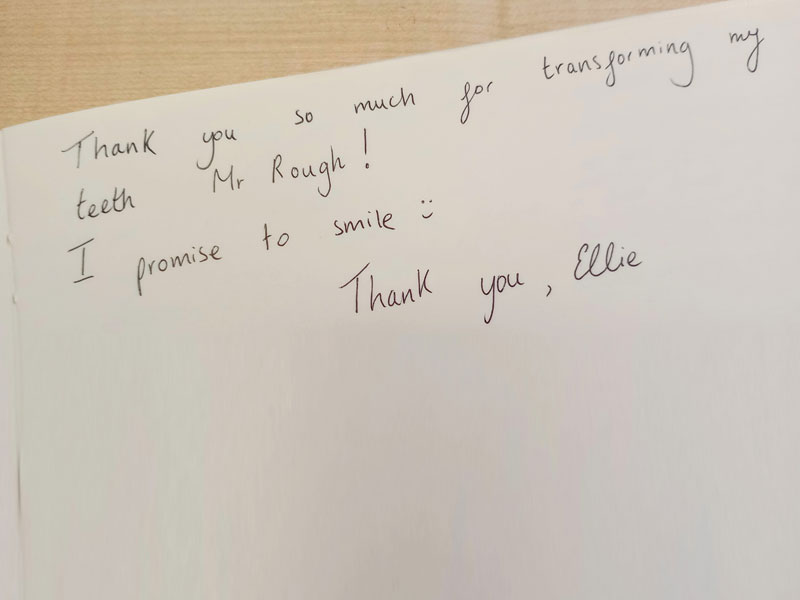 Thank you so much for transforming my
teeth Mr Rough!
I promise to smile :)
Thank you, Ellie